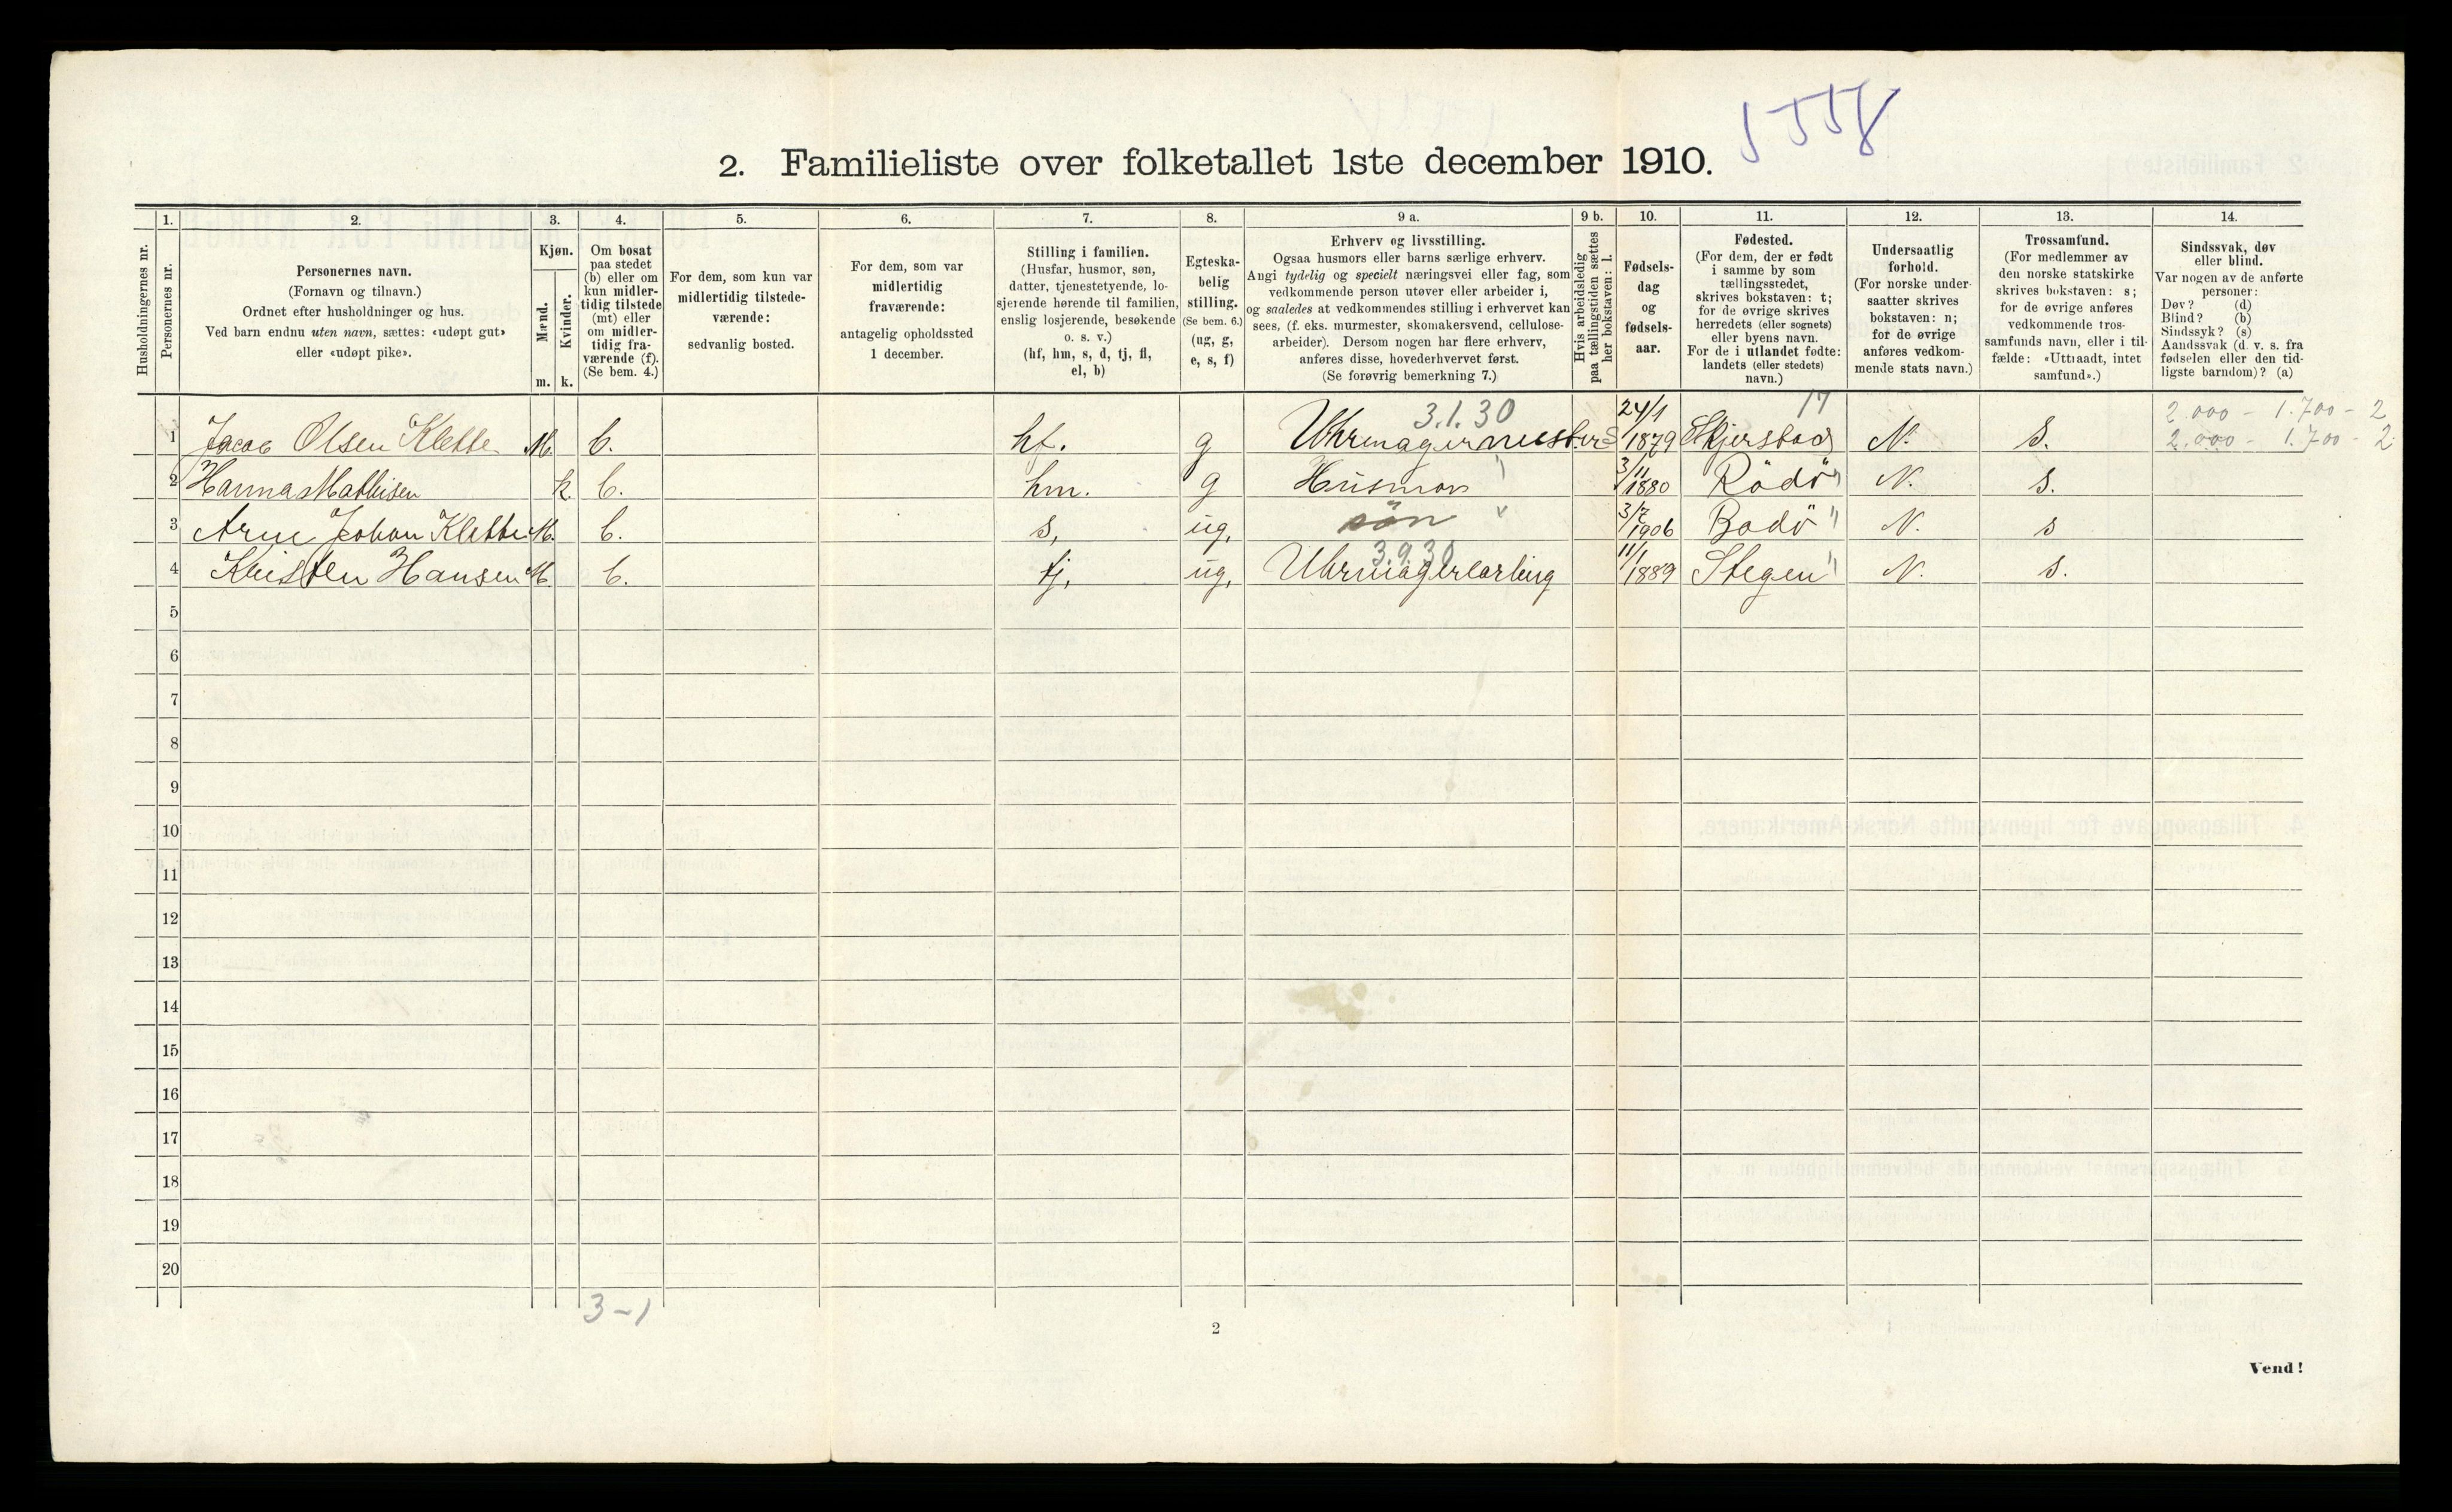 5558
2. Familieliste over folketallet 1ste december 1910.
Husholdningernes nr.
1. Personernes nr.
2. Personernes navn.
(Fornavn og tilnavn.)
Ordnet efter husholdninger og hus.
Ved barn endnu uten navn, sættes: «udøpt gut»
eller «udøpt pike».
3. Kjøn.
Mænd. m.
Kvinder. k.
4. Om bosat
paa stedet
(b) eller om
kun midler-
tidig tilstede
(mt) eller
om midler-
tidig fra-
værende (f).
(Se bem. 4.)
5. For dem, som kun var
midlertidig tilstede-
værende:
sedvanlig bosted.
6. For dem, som var
midlertidig
fraværende:
antagelig opholdssted
1 december.
7. Stilling i familien.
(Husfar, husmor, søn,
datter, tjenestetyende, lo-
sjerende hørende til familien,
enslig losjerende, besøkende
o. s. v.)
(hf, hm, s, d, tj, fl,
el, b)
8. Egteska-
belig
stilling.
(Se bem. 6.)
(ug, g,
e, s, f)
9 a. Erhverv og livsstilling.
Ogsaa husmors eller barns særlige erhverv.
Angi tydelig og specielt næringsvei eller fag, som
vedkommende person utøver eller arbeider i,
og saaledes at vedkommendes stilling i erhvervet kan
sees, (f. eks. murmester, skomakersvend, cellulose-
arbeider). Dersom nogen har flere erhverv,
anføres disse, hovederhvervet først.
(Se forøvrig bemerkning 7.)
9 b. Hvis arbeidsledig
paa tællingstiden sættes
her bokstaven: l.
10. Fødsels-
dag
og
fødsels-
aar.
11. Fødested.
(For dem, der er født
i samme by som
tællingsstedet,
skrives bokstaven: t;
for de øvrige skrives
herredets (eller sognets)
eller byens navn.
For de i utlandet fødte:
landets (eller stedets)
navn.)
12. Undersaatlig
forhold.
(For norske under-
saatter skrives
bokstaven: n;
for de øvrige
anføres vedkom-
mende stats navn.)
13. Trossamfund.
(For medlemmer av
den norske statskirke
skrives bokstaven: s;
for de øvrige anføres
vedkommende tros-
samfunds navn, eller i til-
fælde: «Uttraadt, intet
samfund».)
14. Sindssvak, døv
eller blind.
Var nogen av de anførte
personer:
Døv? (d)
Blind? (b)
Sindssyk? (s)
Aandssvak (d. v. s. fra
fødselen eller den tid-
ligste barndom)? (a)
3.1.30 17 2.000 - 1.700 - 2
1 Jacob Olsen Klette M. b. hf. g Uhrmagermester 24/1 1879 Skjerstad N. S. 2.000 - 1.700 - 2
2 Hanna Mathisen k. b. hm. g Husmor " 3/11 1880 Rödö " N. s.
3 Arne Johan Klette M. b. s, ug, sön 3/7 1906 Bodö " N. s
3.9.30
4 Kristen Hansen M. b. tj, ug, Uhrmagerlærling 11/1 1889 Stegen " N. s.
5
6
7
8
9
10
11
12
13
14
15
16
17
18
19
20
3-1
2
Vend!